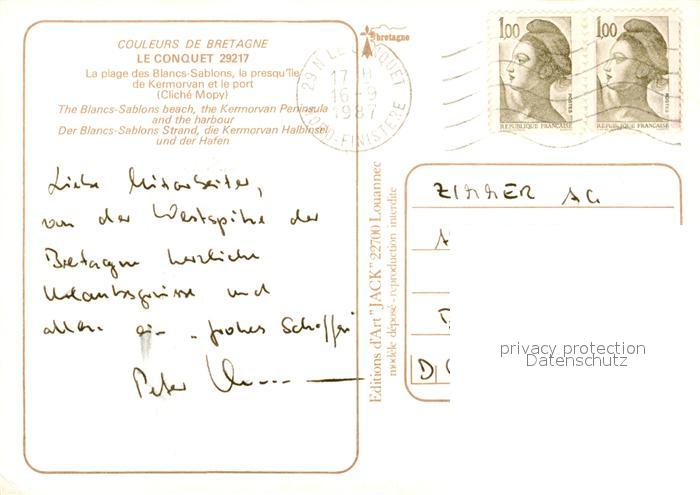 COULEURS DE BRETAGNE
LE CONQUET 29217
La plage des Blancs-Sablons, la presqu'île
de Kermorvan et le port
(Cliché Mopy)
The Blancs-Sablons beach, the Kermorvan Peninsula
and the harbour
Der Blancs-Sablons Strand, die Kermorvan Halbinsel
und der Hafen
Liebe Mitarbeiter,
von der Westspitze der
Bretagne herzliche
Urlaubsgrüsse und
allen ein "frohes Schaffen"
Peter
bretagne
29 N LE CONQUET
17 H
16-9
1987
NORD-FINISTERE
1,00
POSTES
REPUBLIQUE FRANÇAISE
1,00
POSTES
REPUBLIQUE FRANÇAISE
Editions d'Art "JACK" 22700 Louannec
modèle déposé - reproduction interdite
ZIMMER AG
D
privacy protection
Datenschutz